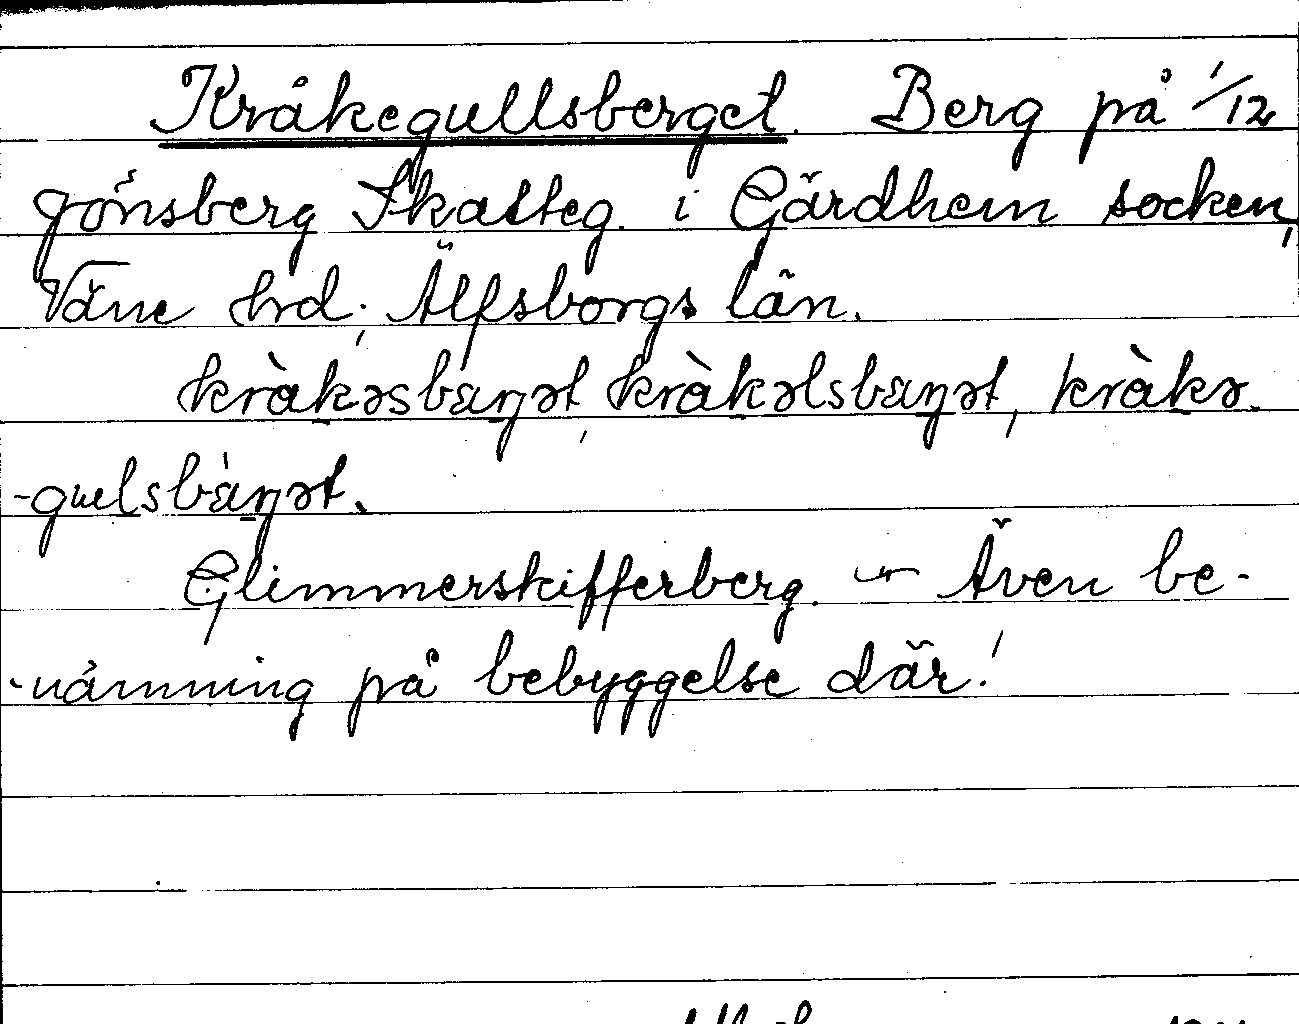 Kråkegullsberget. Berg på 1/12
Jönsberg Skatteg. i Gärdhem socken,
Väne hrd; Älfsborgs län.
kràkəsbæŋət, kràkəlsbæŋət, kràkə-
-gulsbæ̀ŋət.
Glimmerskifferberg. — Även be-
-nämning på bebyggelse där!